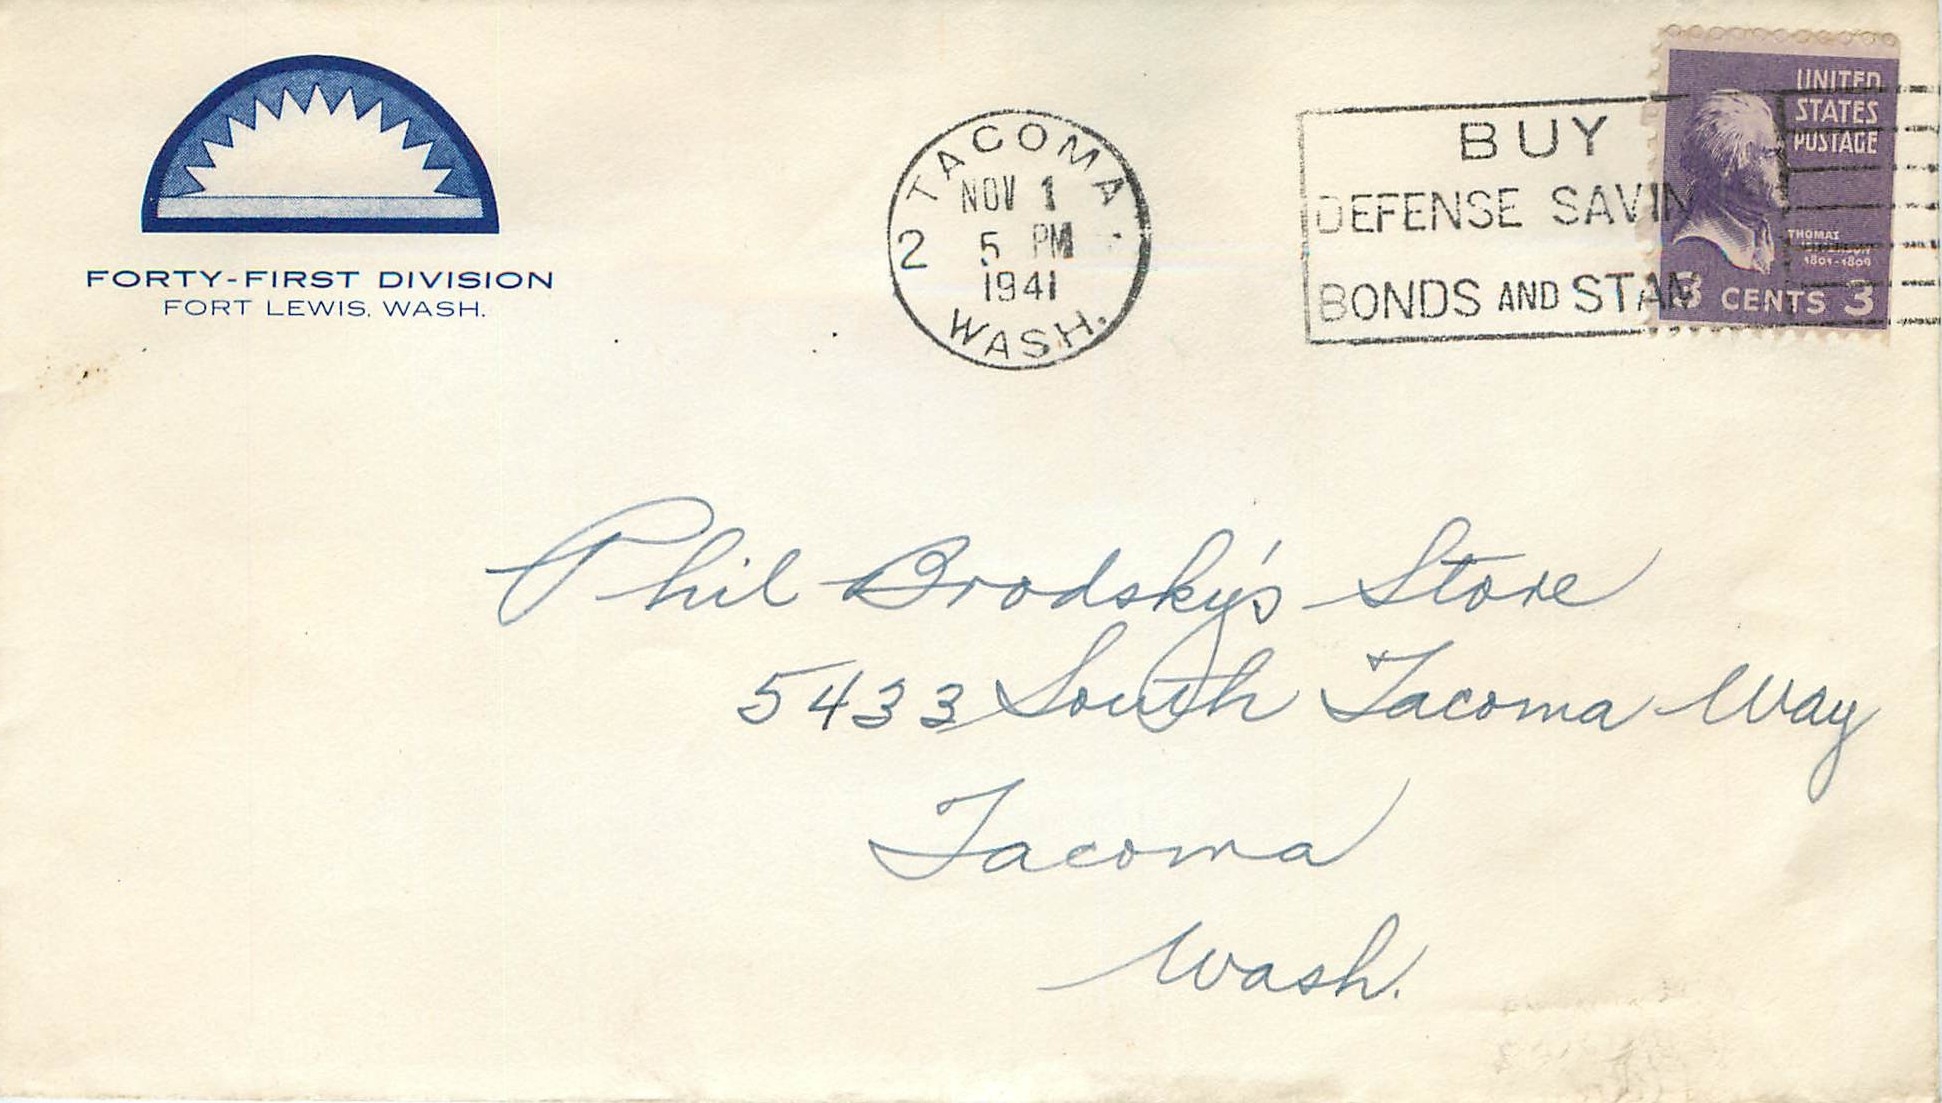 FORTY-FIRST DIVISION
FORT LEWIS, WASH.
TACOMA
NOV 1
2 5 PM
1941
WASH.
BUY
DEFENSE SAVIN
BONDS AND STAM
UNITED
STATES
POSTAGE
THOMAS
1801-1809
3 CENTS 3
Phil Brodsky's Store
5433 South Tacoma Way
Tacoma
Wash.